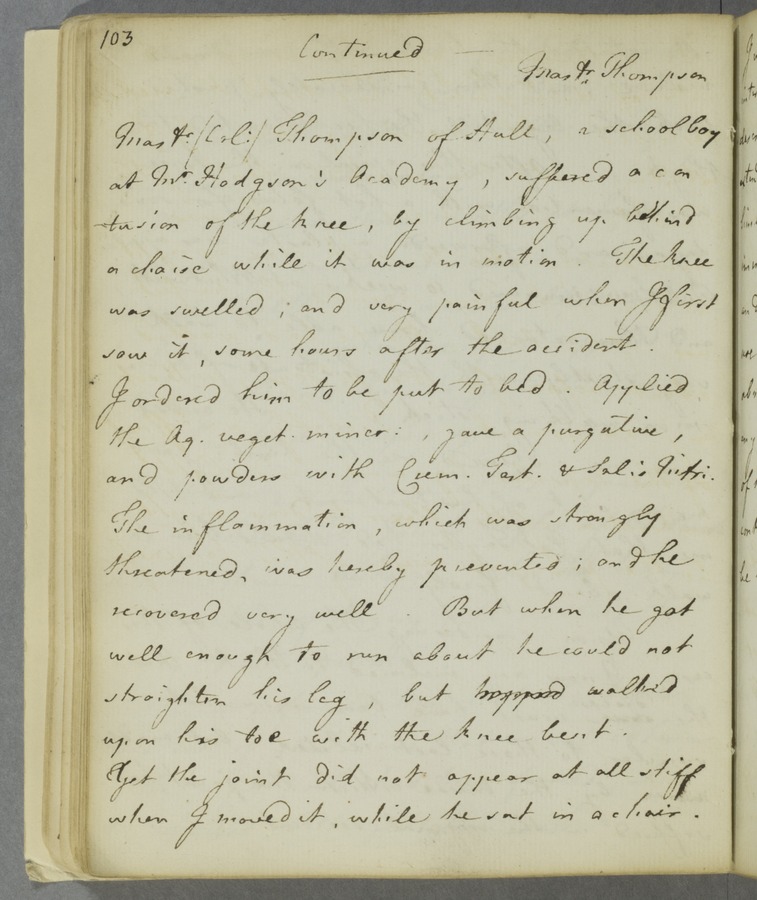 103
Continued
Mastr. Thompson
Mastr. /Crl:/ Thompson of Hull, a school boy
at Mr. Hodgson's Academy, suffered a con
tusion of the knee, by climbing up behind
a chaise while it was in motion. The knee
was swelled; and very painful when I first
saw it, some hours after the accident.
I ordered him to be put to bed. Applied
the Aq. veget. miner:, gave a purgative,
and powders with Crem. Tart. & Salis Nitri.
The inflammation, which was strongly
threatened, was hereby prevented; and he
recovered very well. But when he got
well enough to run about he could not
straighten his leg, but hopped walked
upon his toe with the knee bent.
Yet the joint did not appear at all stiff
when I moved it, while he sat in a chair.